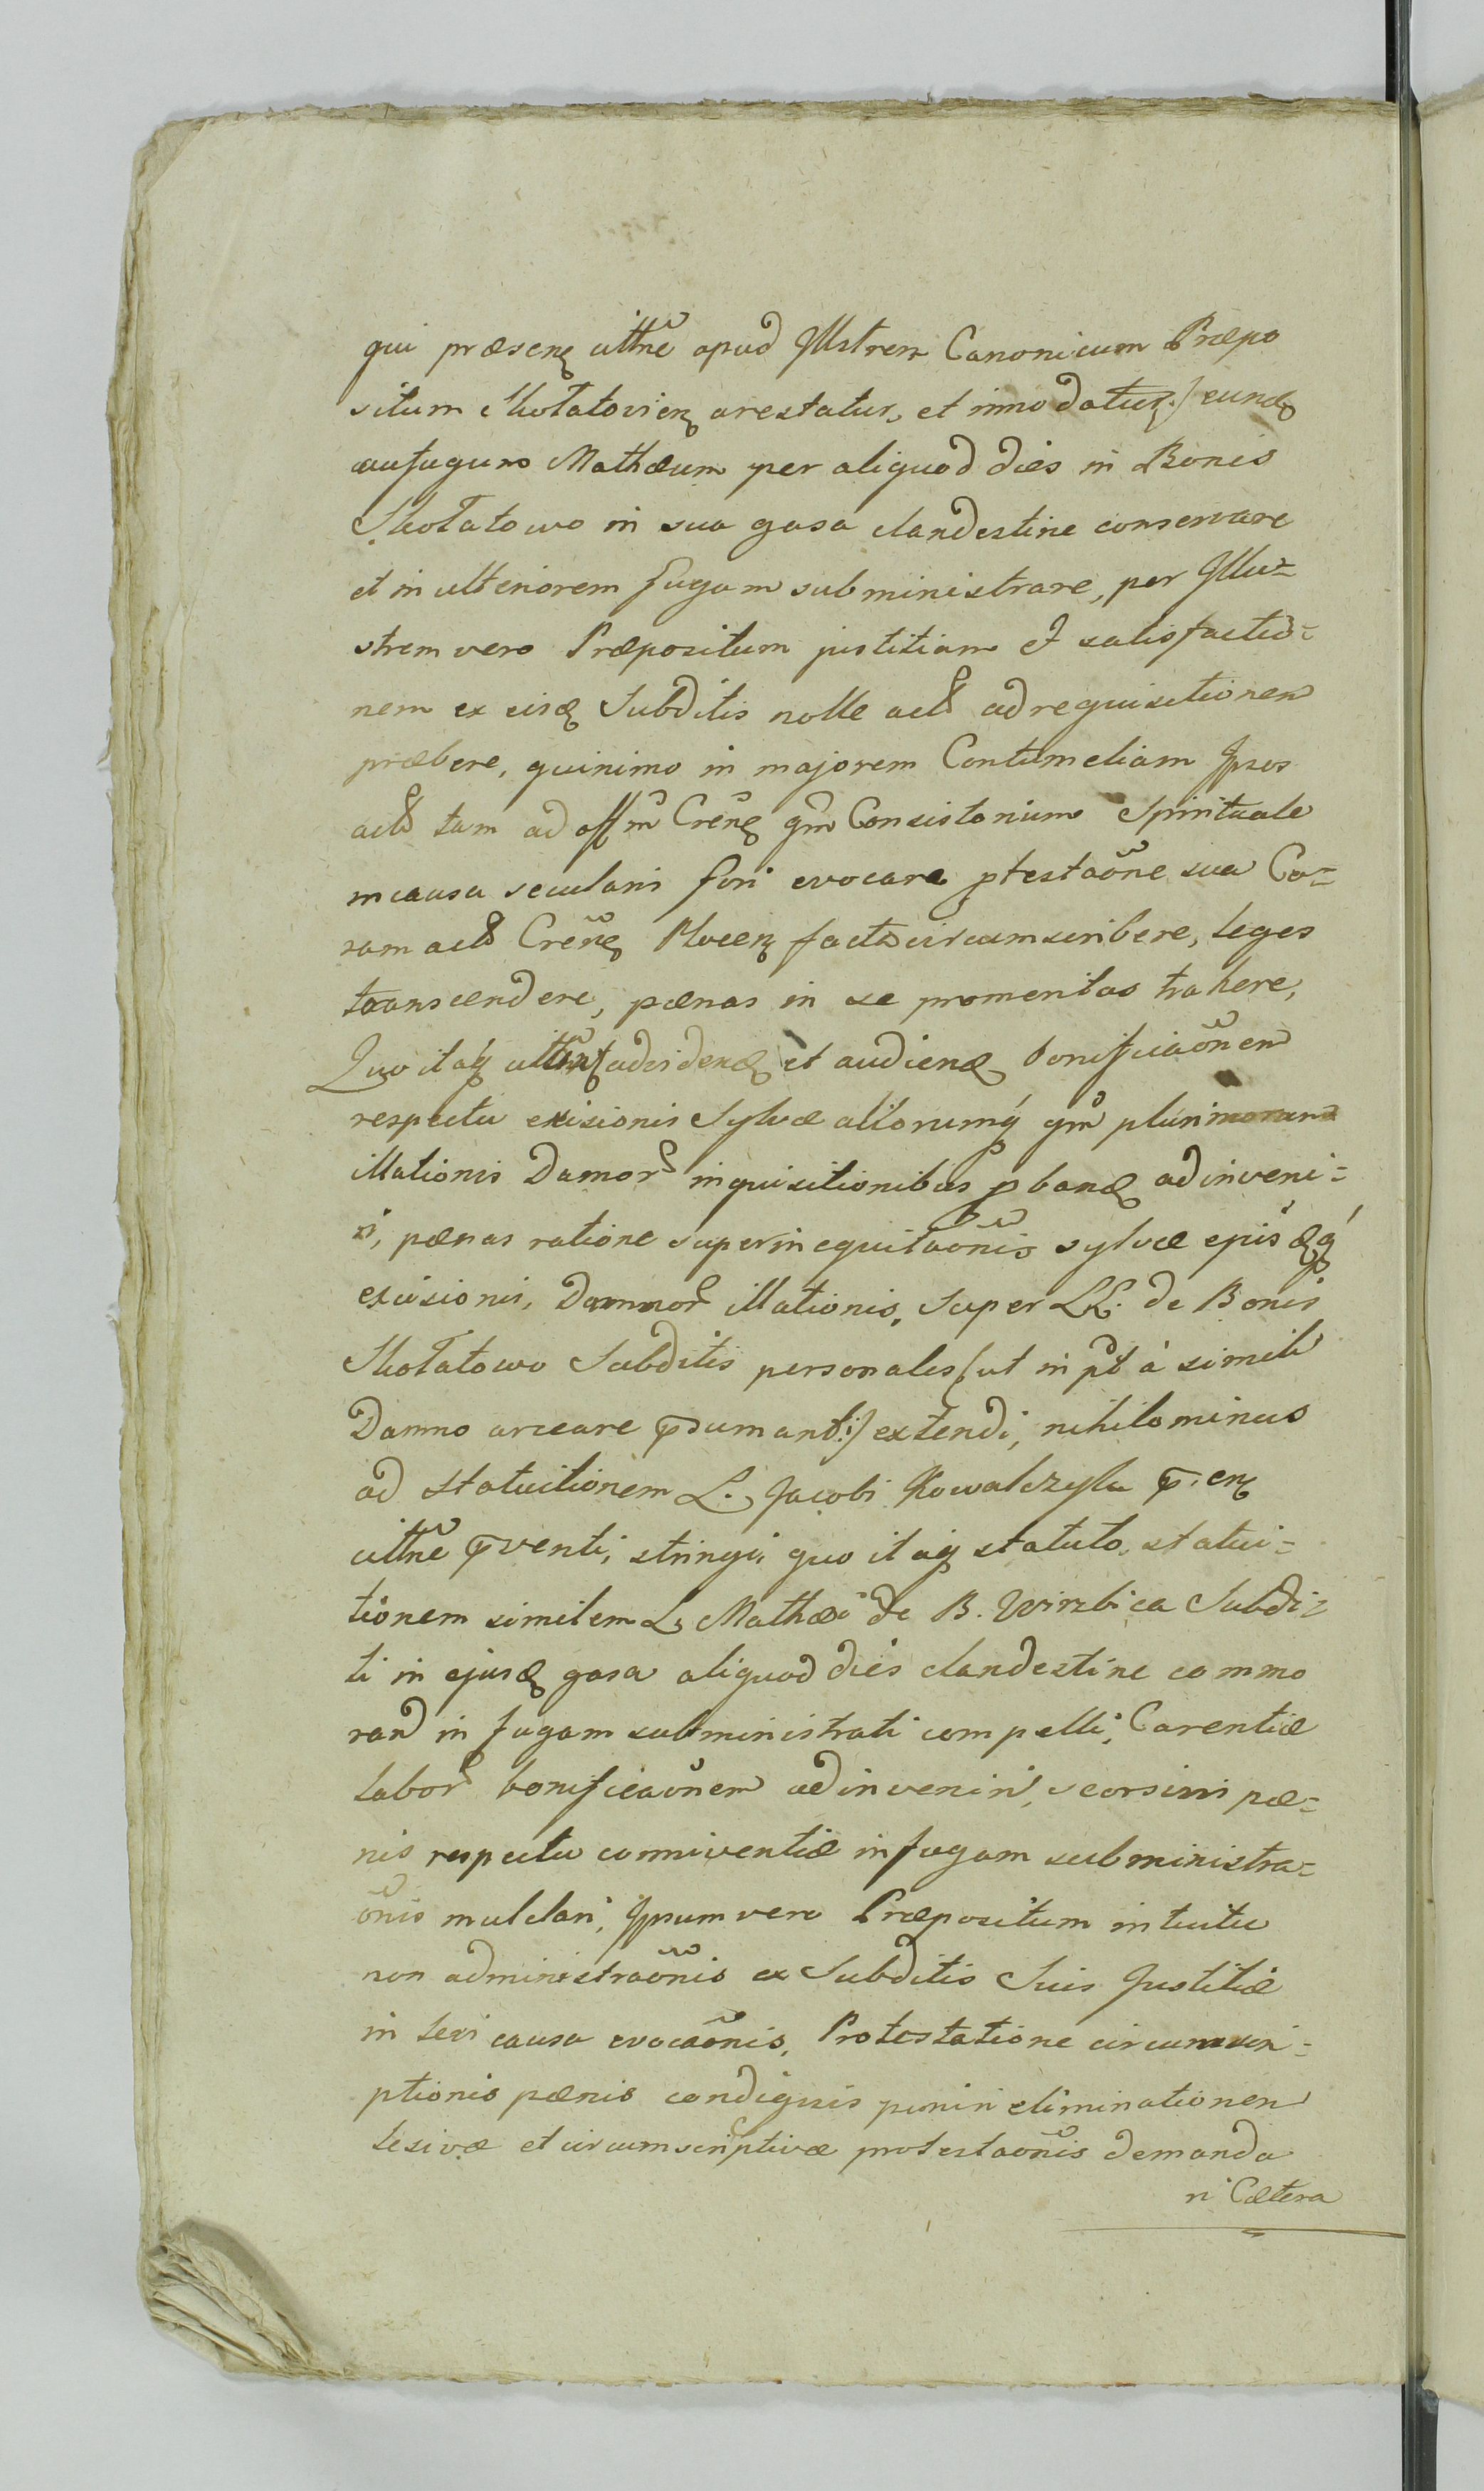 qui præsenʒ ultñe apud Jllstrem Canonicum Præpo
situm Skołatovienʒ arestatur, et innodatur:/ eundʒ
aufugum Mathæum per aliquod dies in Bonis
Skołatowo in sua gasa clandestine conservare
et in ulteriorem fugam subministrare, per Jllu=
strem vero Præpositum justitiam et satisfactio=
nem ex eisdʒ Subditis nolle actõ ad requisitionem
præbere, quinimo in majorem Contumeliam Jpsos
actõ tam ad offm̃ Creñʒ qm̃ Consistorium Spirituale
in causa secularis fori evocare ptestaõne sua Co=
ram actõ Creñʒ Plocenʒ facta circumscribere, leges
transcendere, pænas in se promeritas trahere,
Quo itaqʒ et audiendʒ bonificaõnem
respectu excisionis Sylvæ aliorumqʒ qm̃ plurimorum
illationis Damor inquisitionibus pbandʒ adinveni=
ri, pænas ratione superinequitaõnis sylvæ
excisionis, Damnor illationis, super LL. de Bonis
Skołatowo Subditis personales (ut in à simili
Damno arceare psumant:/ extendi, nihilominus
ad statuitionem L. Jacobi Kowalczyka p. enʒ
ultñe pventi, stringi, quo itaqʒ statuto, statui=
tionem similem L. Mathæi de B. Wirzbica Subdi=
ti in ejusdʒ gasa aliquod dies clandestine commo
rañ in fugam subministrati compelli, Carentiæ
labor bonificaõnem adinveniri, seorsim pæ=
nis respectu conniventiæ in fugam subministra=
õnis mulctari, Jpsum vero Præpositum intuitu
non administraõnis ex Subditis Suis Justitiæ
in levi causa evocaõnis, Protestatione circumscri=
ptionis pænis condignis puniri eliminationem
lesivæ et circumscriptivæ protestaõnis demanda
ri Cætera